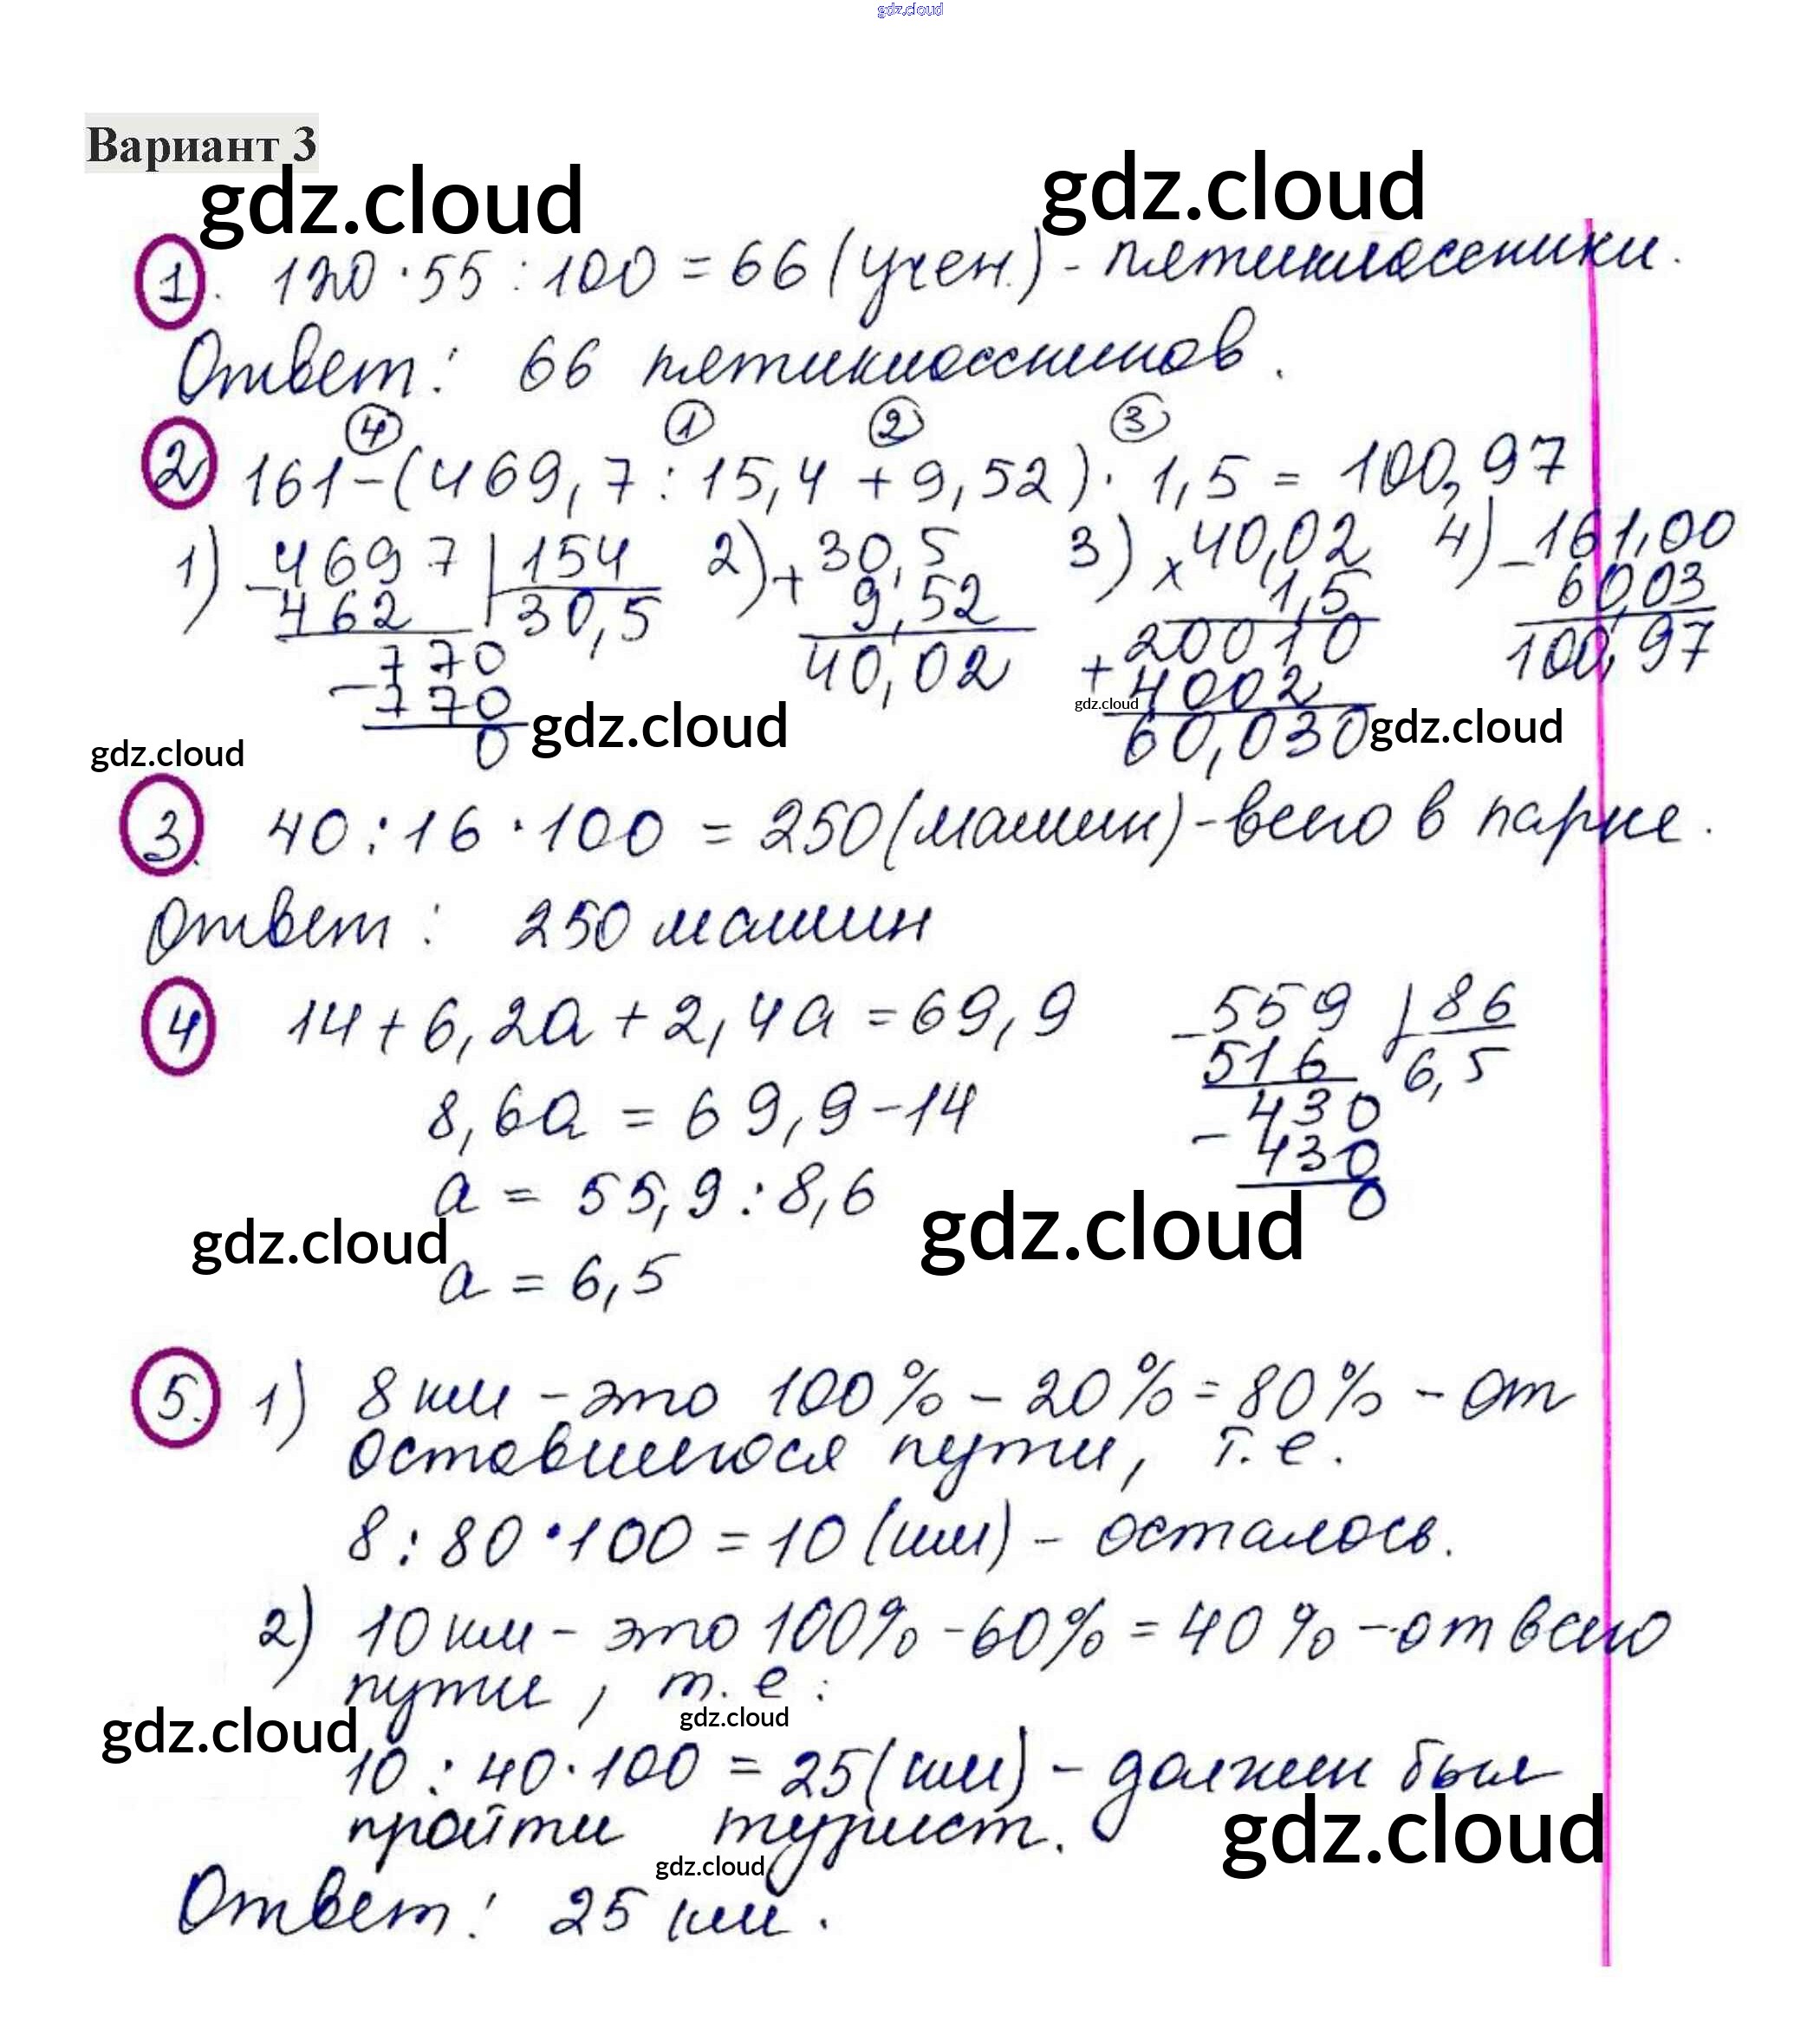 gdz.cloud
Вариант 3
gdz.cloud gdz.cloud
1. 120 · 55 : 100 = 66 (учен.) - пятиклассники.
Ответ: 66 пятиклассников.
4 1 2 3
2 161 - (469,7 : 15,4 + 9,52) · 1,5 = 100,97
1) - 4697 | 154 2) + 30,5 3) x 40,02 4) - 161,00
462 30,5 9,52 1,5 60,03
770 40,02 + 20010 100,97
- 770 4002
0 60,030
gdz.cloud gdz.cloud gdz.cloud gdz.cloud
3. 40 : 16 · 100 = 250 (машин) - всего в парке.
Ответ: 250 машин
4 14 + 6,2a + 2,4a = 69,9 - 559 | 86
8,6a = 69,9 - 14 516 6,5
a = 55,9 : 8,6 430
a = 6,5 - 430
0
gdz.cloud gdz.cloud
5. 1) 8 км - это 100% - 20% = 80% - от
оставшегося пути, т.е.
8 : 80 · 100 = 10 (км) - осталось.
2) 10 км - это 100% - 60% = 40% - от всего
пути, т.е.
gdz.cloud gdz.cloud
10 : 40 · 100 = 25 (км) - должен был
пройти турист.
gdz.cloud gdz.cloud
Ответ: 25 км.